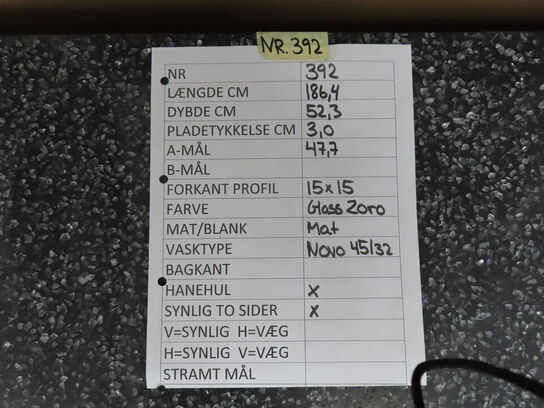 NR. 392
NR 392
LÆNGDE CM 186,4
DYBDE CM 52,3
PLADETYKKELSE CM 3,0
A-MÅL 47,7
B-MÅL
FORKANT PROFIL 15x15
FARVE Glass Zoro
MAT/BLANK Mat
VASKTYPE Novo 45/32
BAGKANT
HANEHUL x
SYNLIG TO SIDER x
V=SYNLIG H=VÆG
H=SYNLIG V=VÆG
STRAMT MÅL